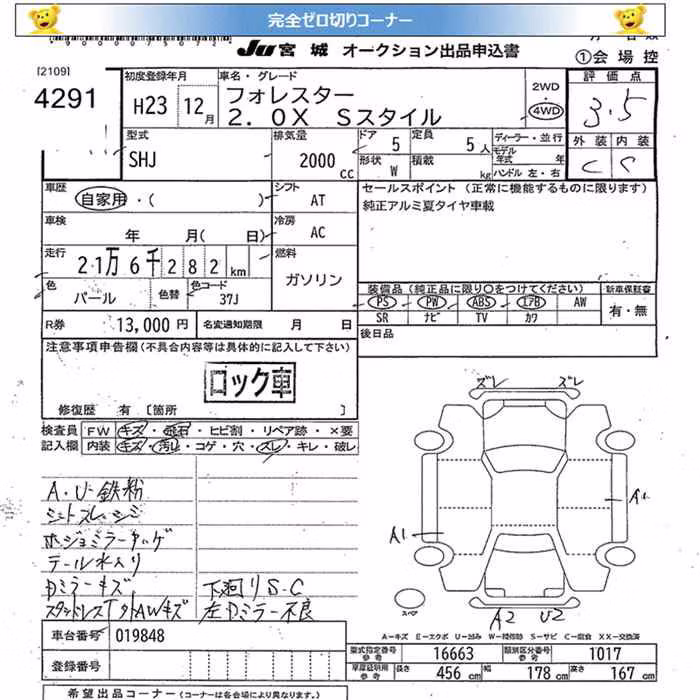 完全ゼロ切りコーナー
JU 宮城 オークション出品申込書
①会場控
[2109]
4291
初度登録年月
H23 12月
車名・グレード
フォレスター
2.0X Sスタイル
2WD
4WD
評価点
3.5
外装 内装
C C
型式
SHJ
排気量
2000 CC
ドア 5
定員 5人
形状 W
積載 kg
ディーラー・並行
モデル年式 年
ハンドル 左・右
車歴
自家用・( )
シフト
AT
セールスポイント (正常に機能するものに限ります)
純正アルミ夏タイヤ車載
車検
年 月( 日)
冷房
AC
走行
21万6千282km
燃料
ガソリン
色
パール
色替
色コード
37J
装備品(純正品に限り○をつけてください)
新車保証書
PS PW ABS エアB AW
SR ナビ TV カワ
有・無
R券 13,000円
名変通知期限 月 日
後日品
注意事項申告欄(不具合内容等は具体的に記入して下さい)
ロック車
修復歴 有 [箇所 ]
検査員記入欄
FW キズ・飛石・ヒビ割・リペア跡・×要
内装 キズ・汚れ・コゲ・穴・スレ・キレ・破レ
A・U・鉄粉
シートスレ・シミ
ホジョミラーキズ・ゲ
テール水入り
Dミラーキズ
スタッドレスT外AWキズ
下廻りS・C
左Dミラー不良
ズレ ズレ
A1
A1
A2 U2
スペア
A－キズ E－エクボ U－凹み W－補修跡 S－サビ C－腐食 XX－交換済
車台番号 019848
登録番号
型式指定番号 参考 16663
類別区分番号 参考 1017
車庫証明用 参考
長さ 456cm 幅 178cm 高さ 167cm
希望出品コーナー(コーナーは各会場により異なります。)